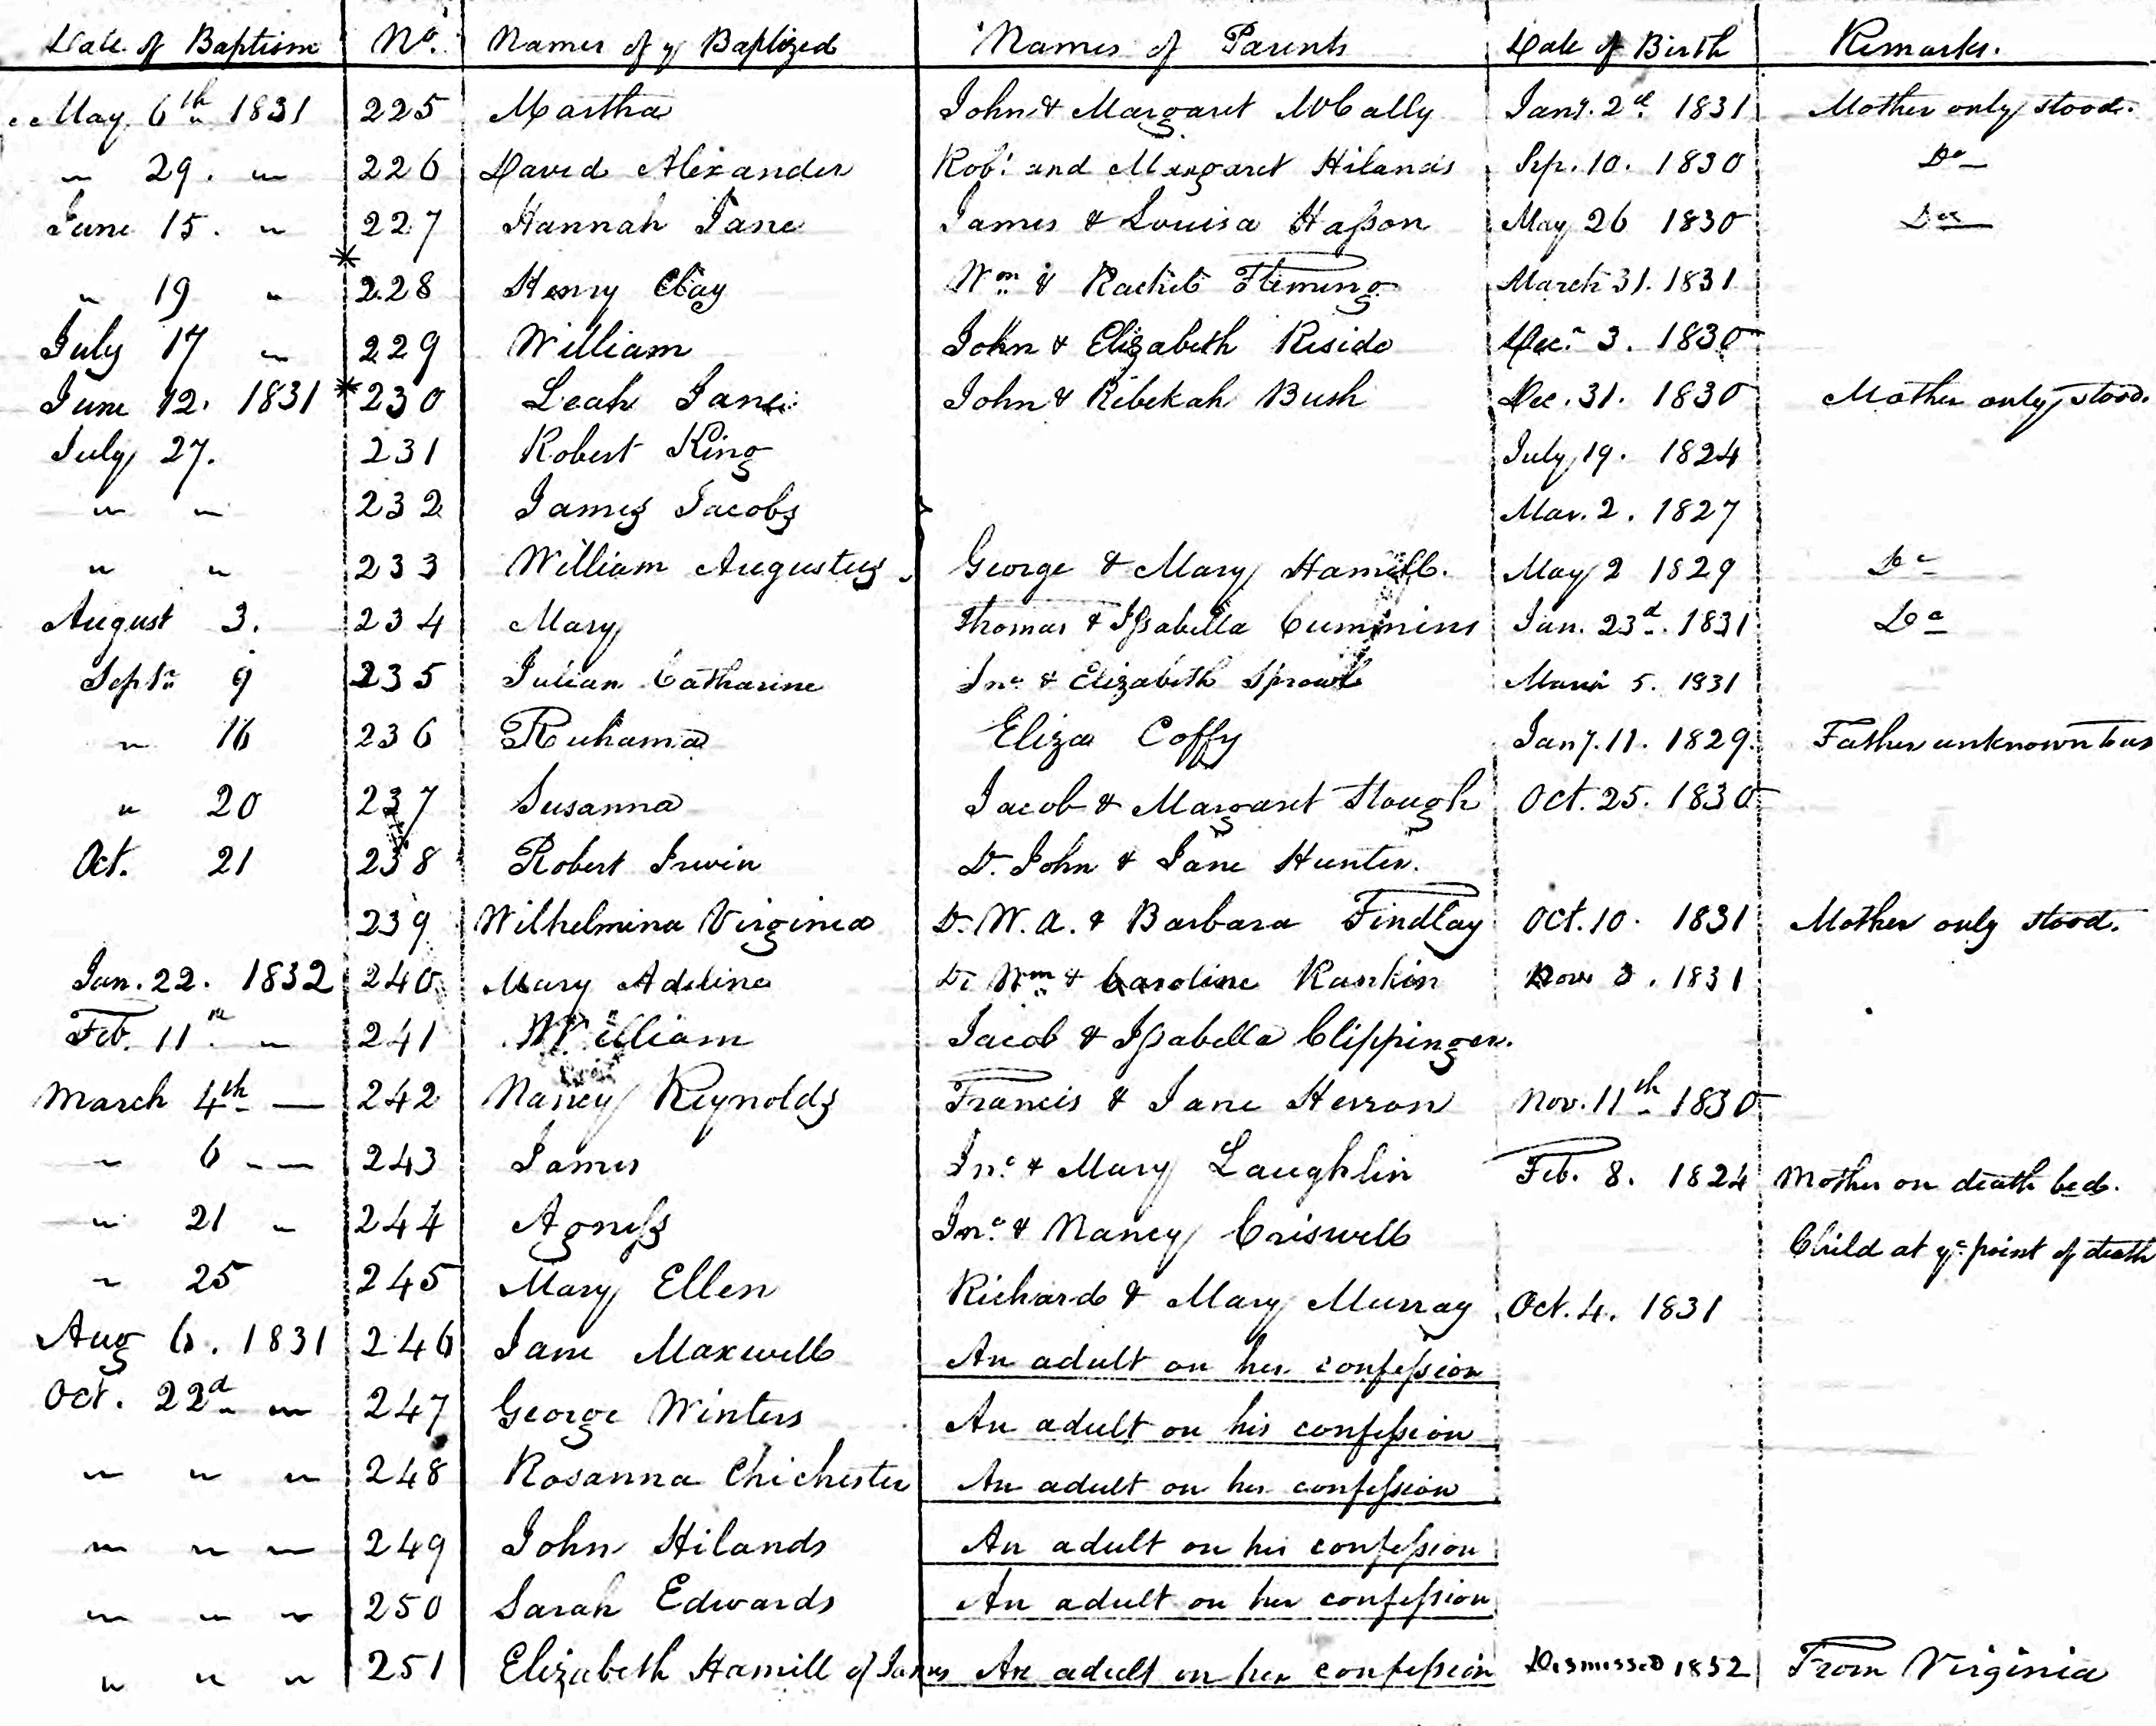 Date of Baptism No. Names of yᵉ Baptized Names of Parents Date of Birth Remarks.
May 6th 1831 225 Martha John & Margaret McCally Jany. 2d. 1831 Mother only stood.
" 29. " 226 David Alexander Robt. and Margaret Hilands Sep. 10. 1830 Do
June 15. " 227 Hannah Jane James & Louisa Haſson May 26 1830 Do
" 19 " * 228 Henry Clay Wm. & Rachel Fleming March 31. 1831
July 17 " 229 William John & Elizabeth Reside Decr. 3. 1830
June 12. 1831 * 230 Leah Jane John & Rebekah Bush Dec. 31. 1830 Mother only stood.
July 27. 231 Robert King July 19. 1824
" " 232 James Jacobs Mar. 2. 1827
" " 233 William Augustus George & Mary Hamill. May 2 1829 Do
August 3. 234 Mary Thomas & Iſsabella Cummins Jan. 23d. 1831 Do
Septr. 9 235 Julian Catharine Jno. & Elizabeth Sprowl 5. 1831
" 16 236 Ruhama Eliza Coffy Jany. 11. 1829. Father unknown to us
" 20 237 Susanna Jacob & Margaret Stough Oct. 25. 1830
Oct. 21 238 Robert Irwin D. John & Jane Hunter.
239 Wilhelmina Virginia D. W. A. & Barbara Findlay Oct. 10. 1831 Mother only stood.
Jan. 22. 1832 240 Mary Adeline Dr Wm. & Caroline Rankin Nov 3. 1831
Feb. 11th " 241 William Jacob & Iſsabella Clippinger.
March 4th — 242 Nancy Reynolds Francis & Jane Herron Nov. 11th 1830
" 6 — 243 James Jno. & Mary Laughlin Feb. 8. 1824 Mother on death bed.
" 21 " 244 Agneſs Jno. & Nancy Criswell Child at yᵉ point of death
" 25 245 Mary Ellen Richard & Mary Murray Oct. 4. 1831
Aug 6. 1831 246 Jane Maxwell An adult on her confeſsion
Oct. 22d " 247 George Winters An adult on his confeſsion
" " " 248 Rosanna Chichester An adult on her confeſsion
" " " 249 John Hilands An adult on his confeſsion
" " " 250 Sarah Edwards An adult on her confeſsion
" " " 251 Elizabeth Hamill of James An adult on her confeſsion Dismissed 1832 From Virginia